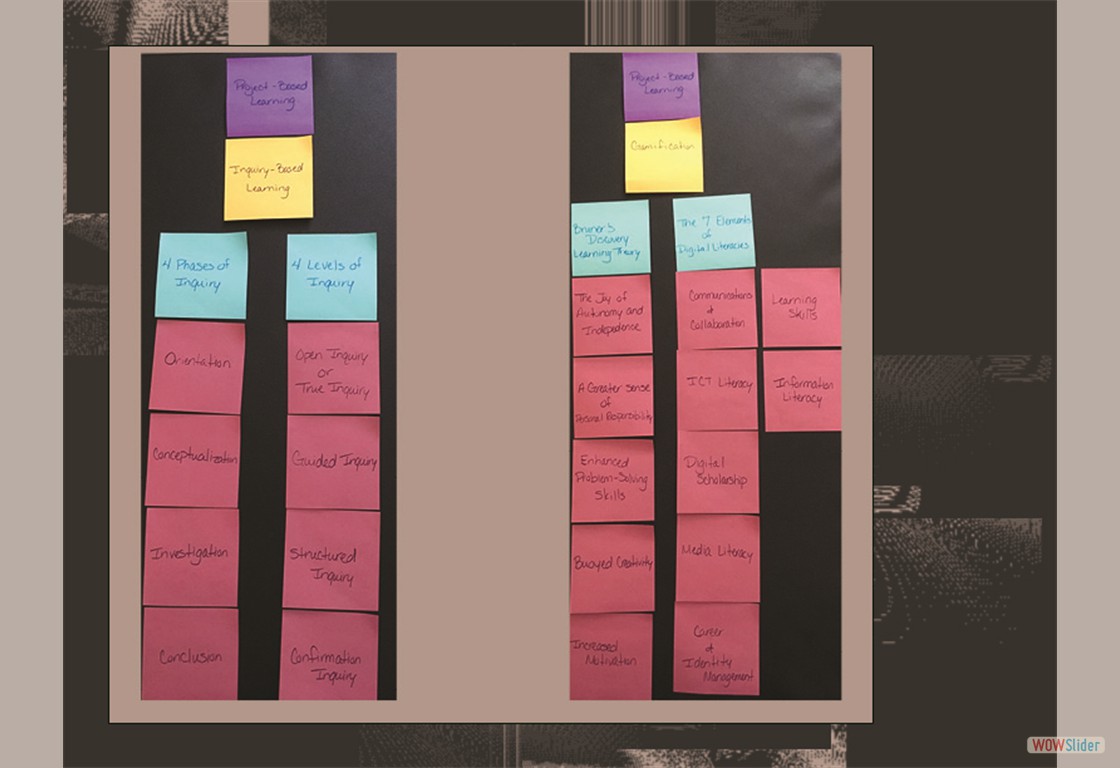 Project-Based
Learning
Inquiry-Based
Learning
4 Phases of
Inquiry
Orientation
Conceptualization
Investigation
Conclusion
4 Levels of
Inquiry
Open Inquiry
or
True Inquiry
Guided Inquiry
Structured
Inquiry
Confirmation
Inquiry
Project-Based
Learning
Gamification
Bruner's
Discovery
Learning Theory
The Joy of
Autonomy and
Independence
A Greater sense
of
Personal Responsibility
Enhanced
Problem-Solving
Skills
Buoyed Creativity
Increased
Motivation
The 7 Elements
of
Digital Literacies
Communications
&
Collaboration
ICT Literacy
Digital
Scholarship
Media Literacy
Career
&
Identity
Management
Learning
Skills
Information
Literacy
WOWSlider